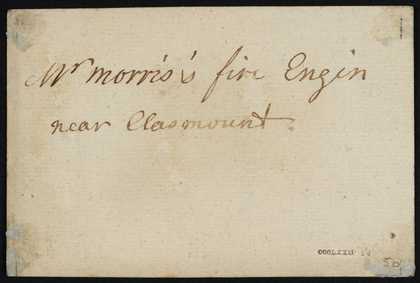 Mr morris's fire Engin
near Clasmount
50